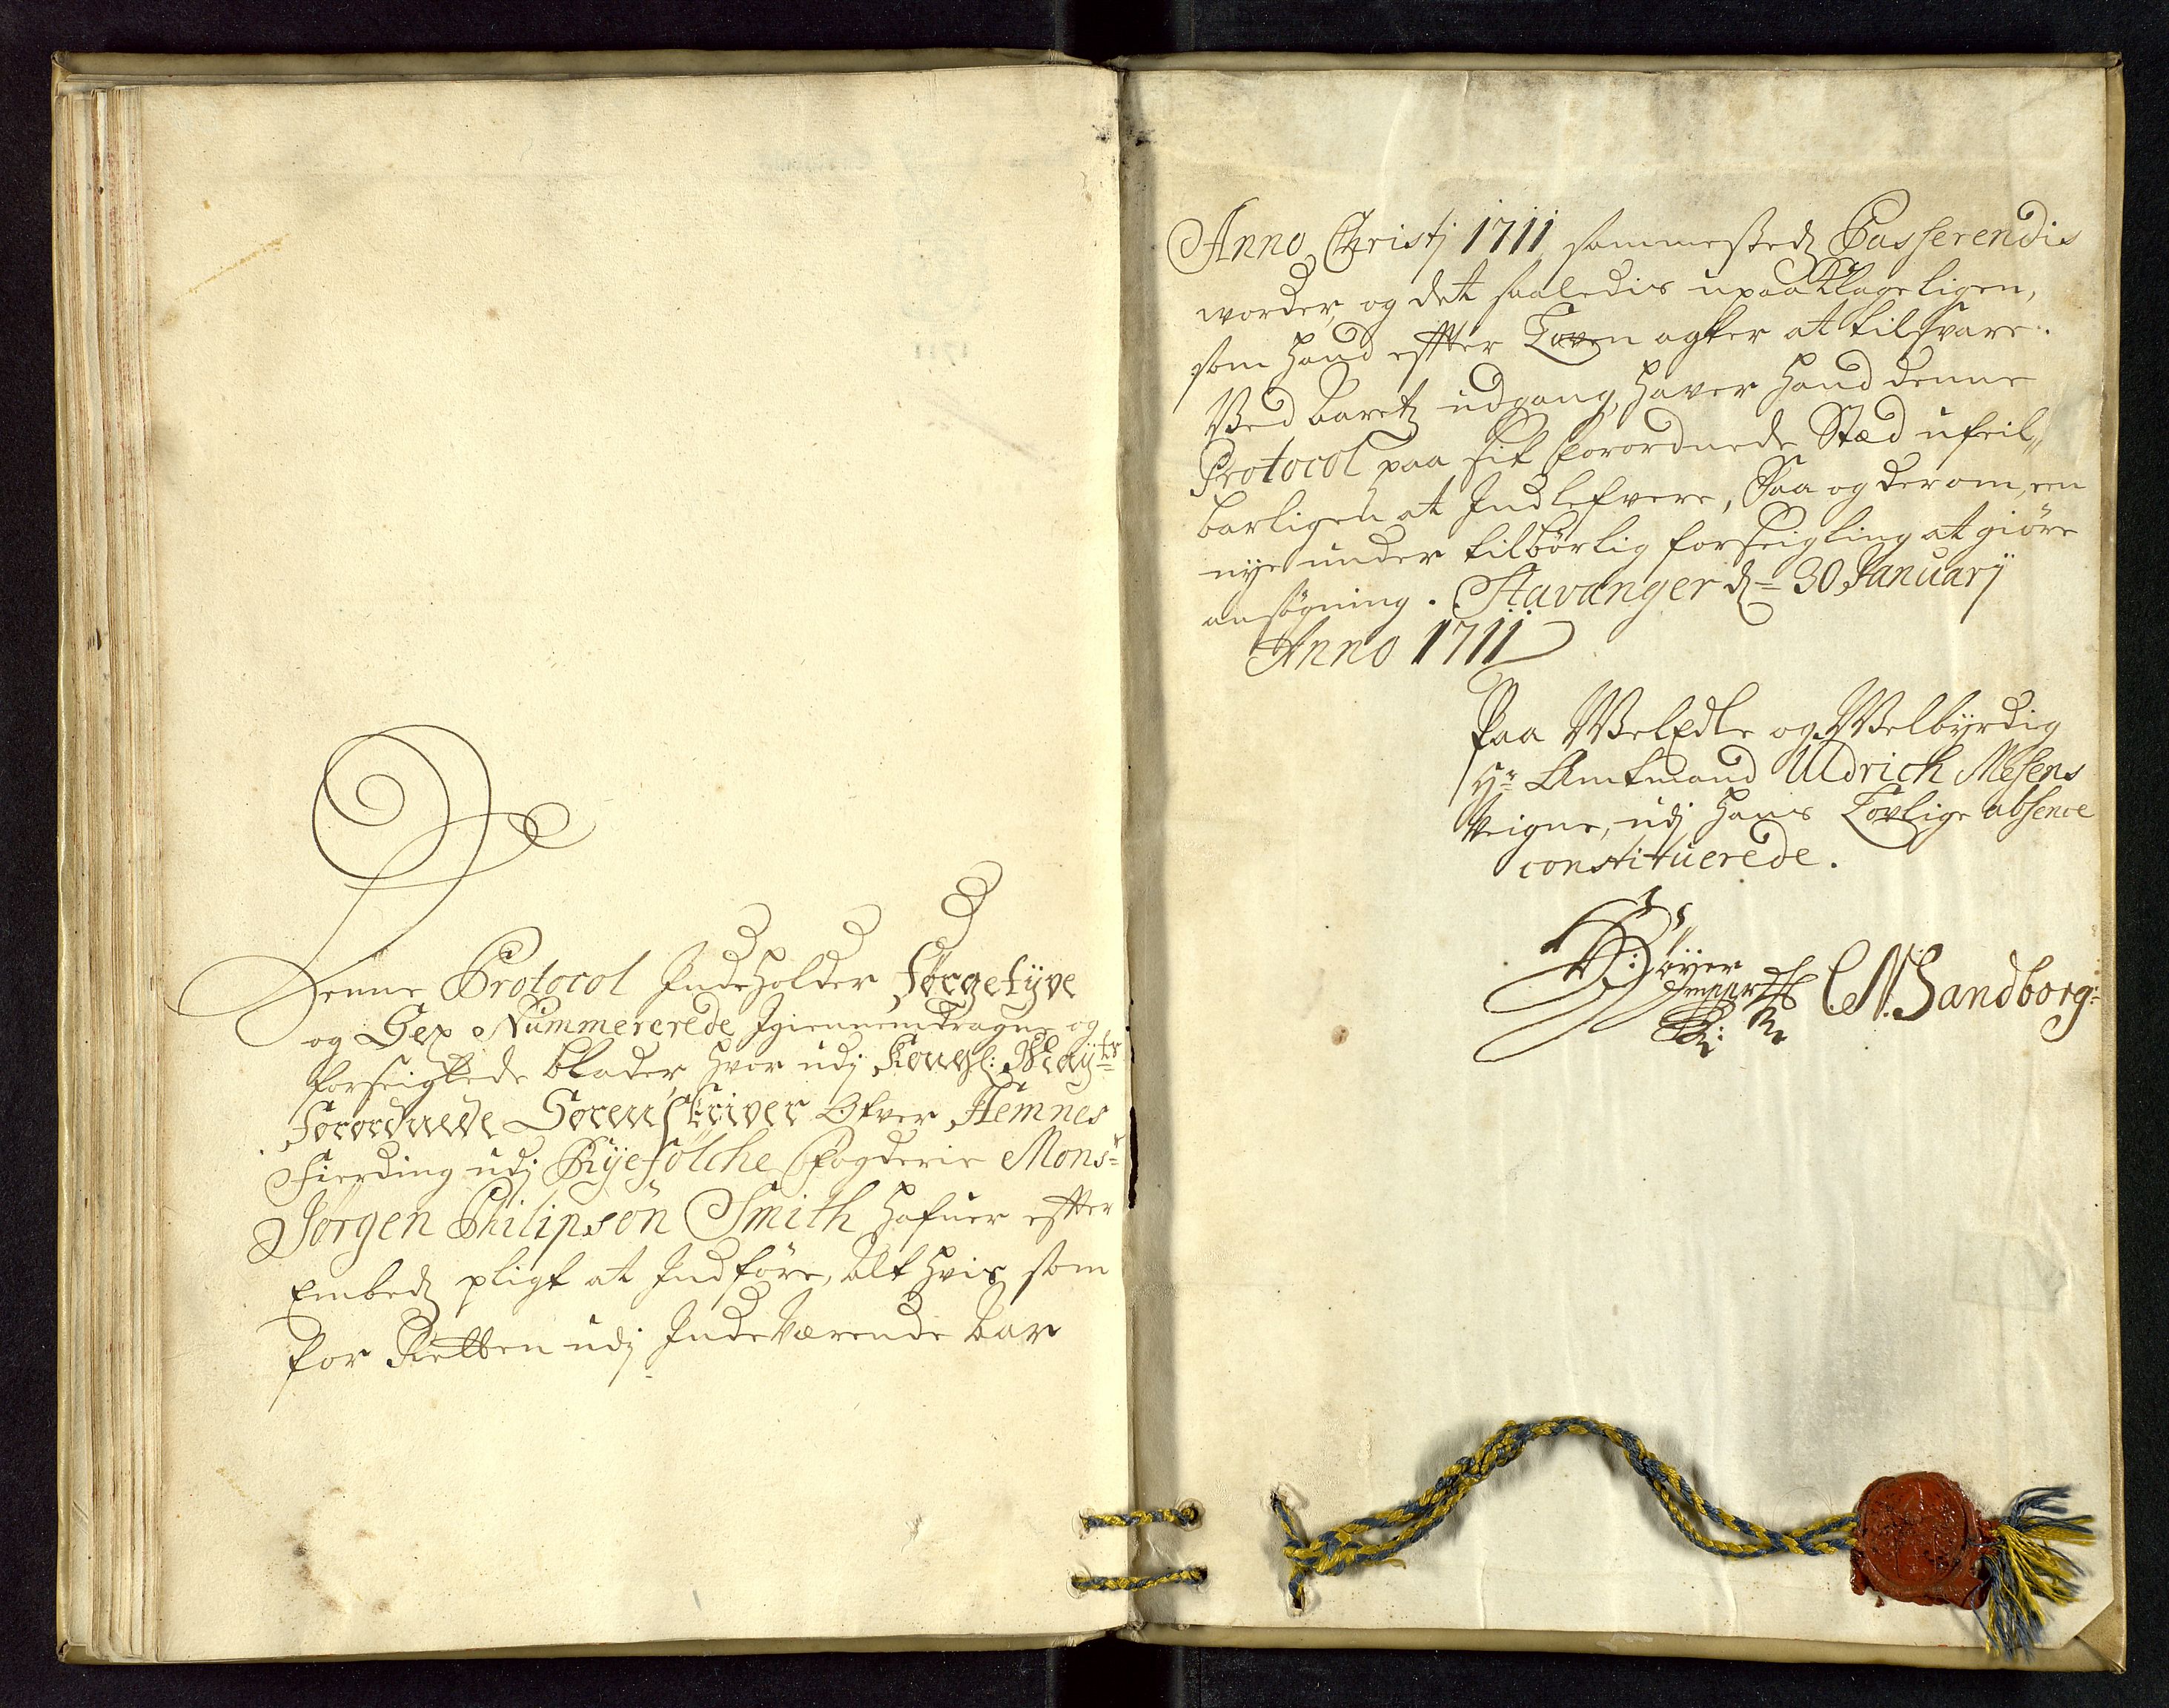 Denne Protocol Indeholder Førgetÿve
og Sex Nummererede Igiennemdragne og
forseiglede blader, hvor udj Kongl: Maÿ:ts
Forordnede Sorenskriver Ofver Hemnes
Fierding udj Rÿefÿlche Fogderie Mons:r
Jørgen Philipsøn Smith hafuer efter
Embeds pligt at Indføre, alt hvis som
for Retten udj Indeværende aar
Anno Christj 1711 sammesteds Passerendis
worder, og det saaledis upaaklageligen,
som hand efter Loven agter at tilsvare.
Ved aarets udgang, haver hand denne
Protocol paa sit forordnede Stæd ufeil„
barligen at Indlefvere, Saa og derom, een
nye under tilbørlig forseigling at giøre
ansøgning. Stavanger ds= 30 Januarÿ
Anno 1711
Paa WelEdle og Welbÿrdig
Hr: Amtmand Uldrich Mesens
Veigne, udj hans Lovlige absence
constituerede.
C N: Sandborg: